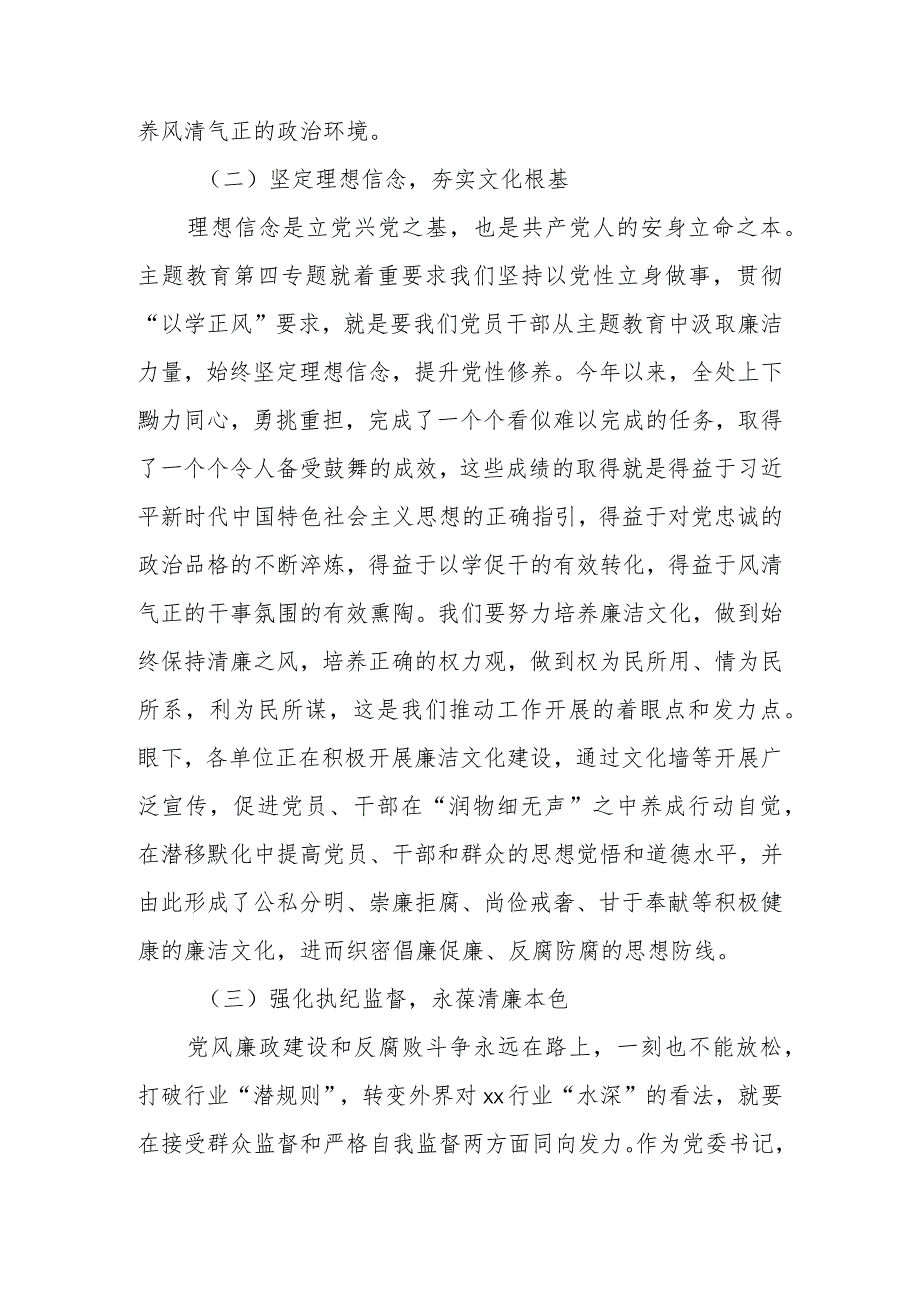 养风清气正的政治环境。
（二）坚定理想信念，夯实文化根基
理想信念是立党兴党之基，也是共产党人的安身立命之本。
主题教育第四专题就着重要求我们坚持以党性立身做事，贯彻
“以学正风”要求，就是要我们党员干部从主题教育中汲取廉洁
力量，始终坚定理想信念，提升党性修养。今年以来，全处上下
黝力同心，勇挑重担，完成了一个个看似难以完成的任务，取得
了一个个令人备受鼓舞的成效，这些成绩的取得就是得益于习近
平新时代中国特色社会主义思想的正确指引，得益于对党忠诚的
政治品格的不断淬炼，得益于以学促干的有效转化，得益于风清
气正的干事氛围的有效熏陶。我们要努力培养廉洁文化，做到始
终保持清廉之风，培养正确的权力观，做到权为民所用、情为民
所系，利为民所谋，这是我们推动工作开展的着眼点和发力点。
眼下，各单位正在积极开展廉洁文化建设，通过文化墙等开展广
泛宣传，促进党员、干部在“润物细无声”之中养成行动自觉，
在潜移默化中提高党员、干部和群众的思想觉悟和道德水平，并
由此形成了公私分明、崇廉拒腐、尚俭戒奢、甘于奉献等积极健
康的廉洁文化，进而织密倡廉促廉、反腐防腐的思想防线。
（三）强化执纪监督，永葆清廉本色
党风廉政建设和反腐败斗争永远在路上，一刻也不能放松，
打破行业“潜规则”，转变外界对xx行业“水深”的看法，就要
在接受群众监督和严格自我监督两方面同向发力。作为党委书记，